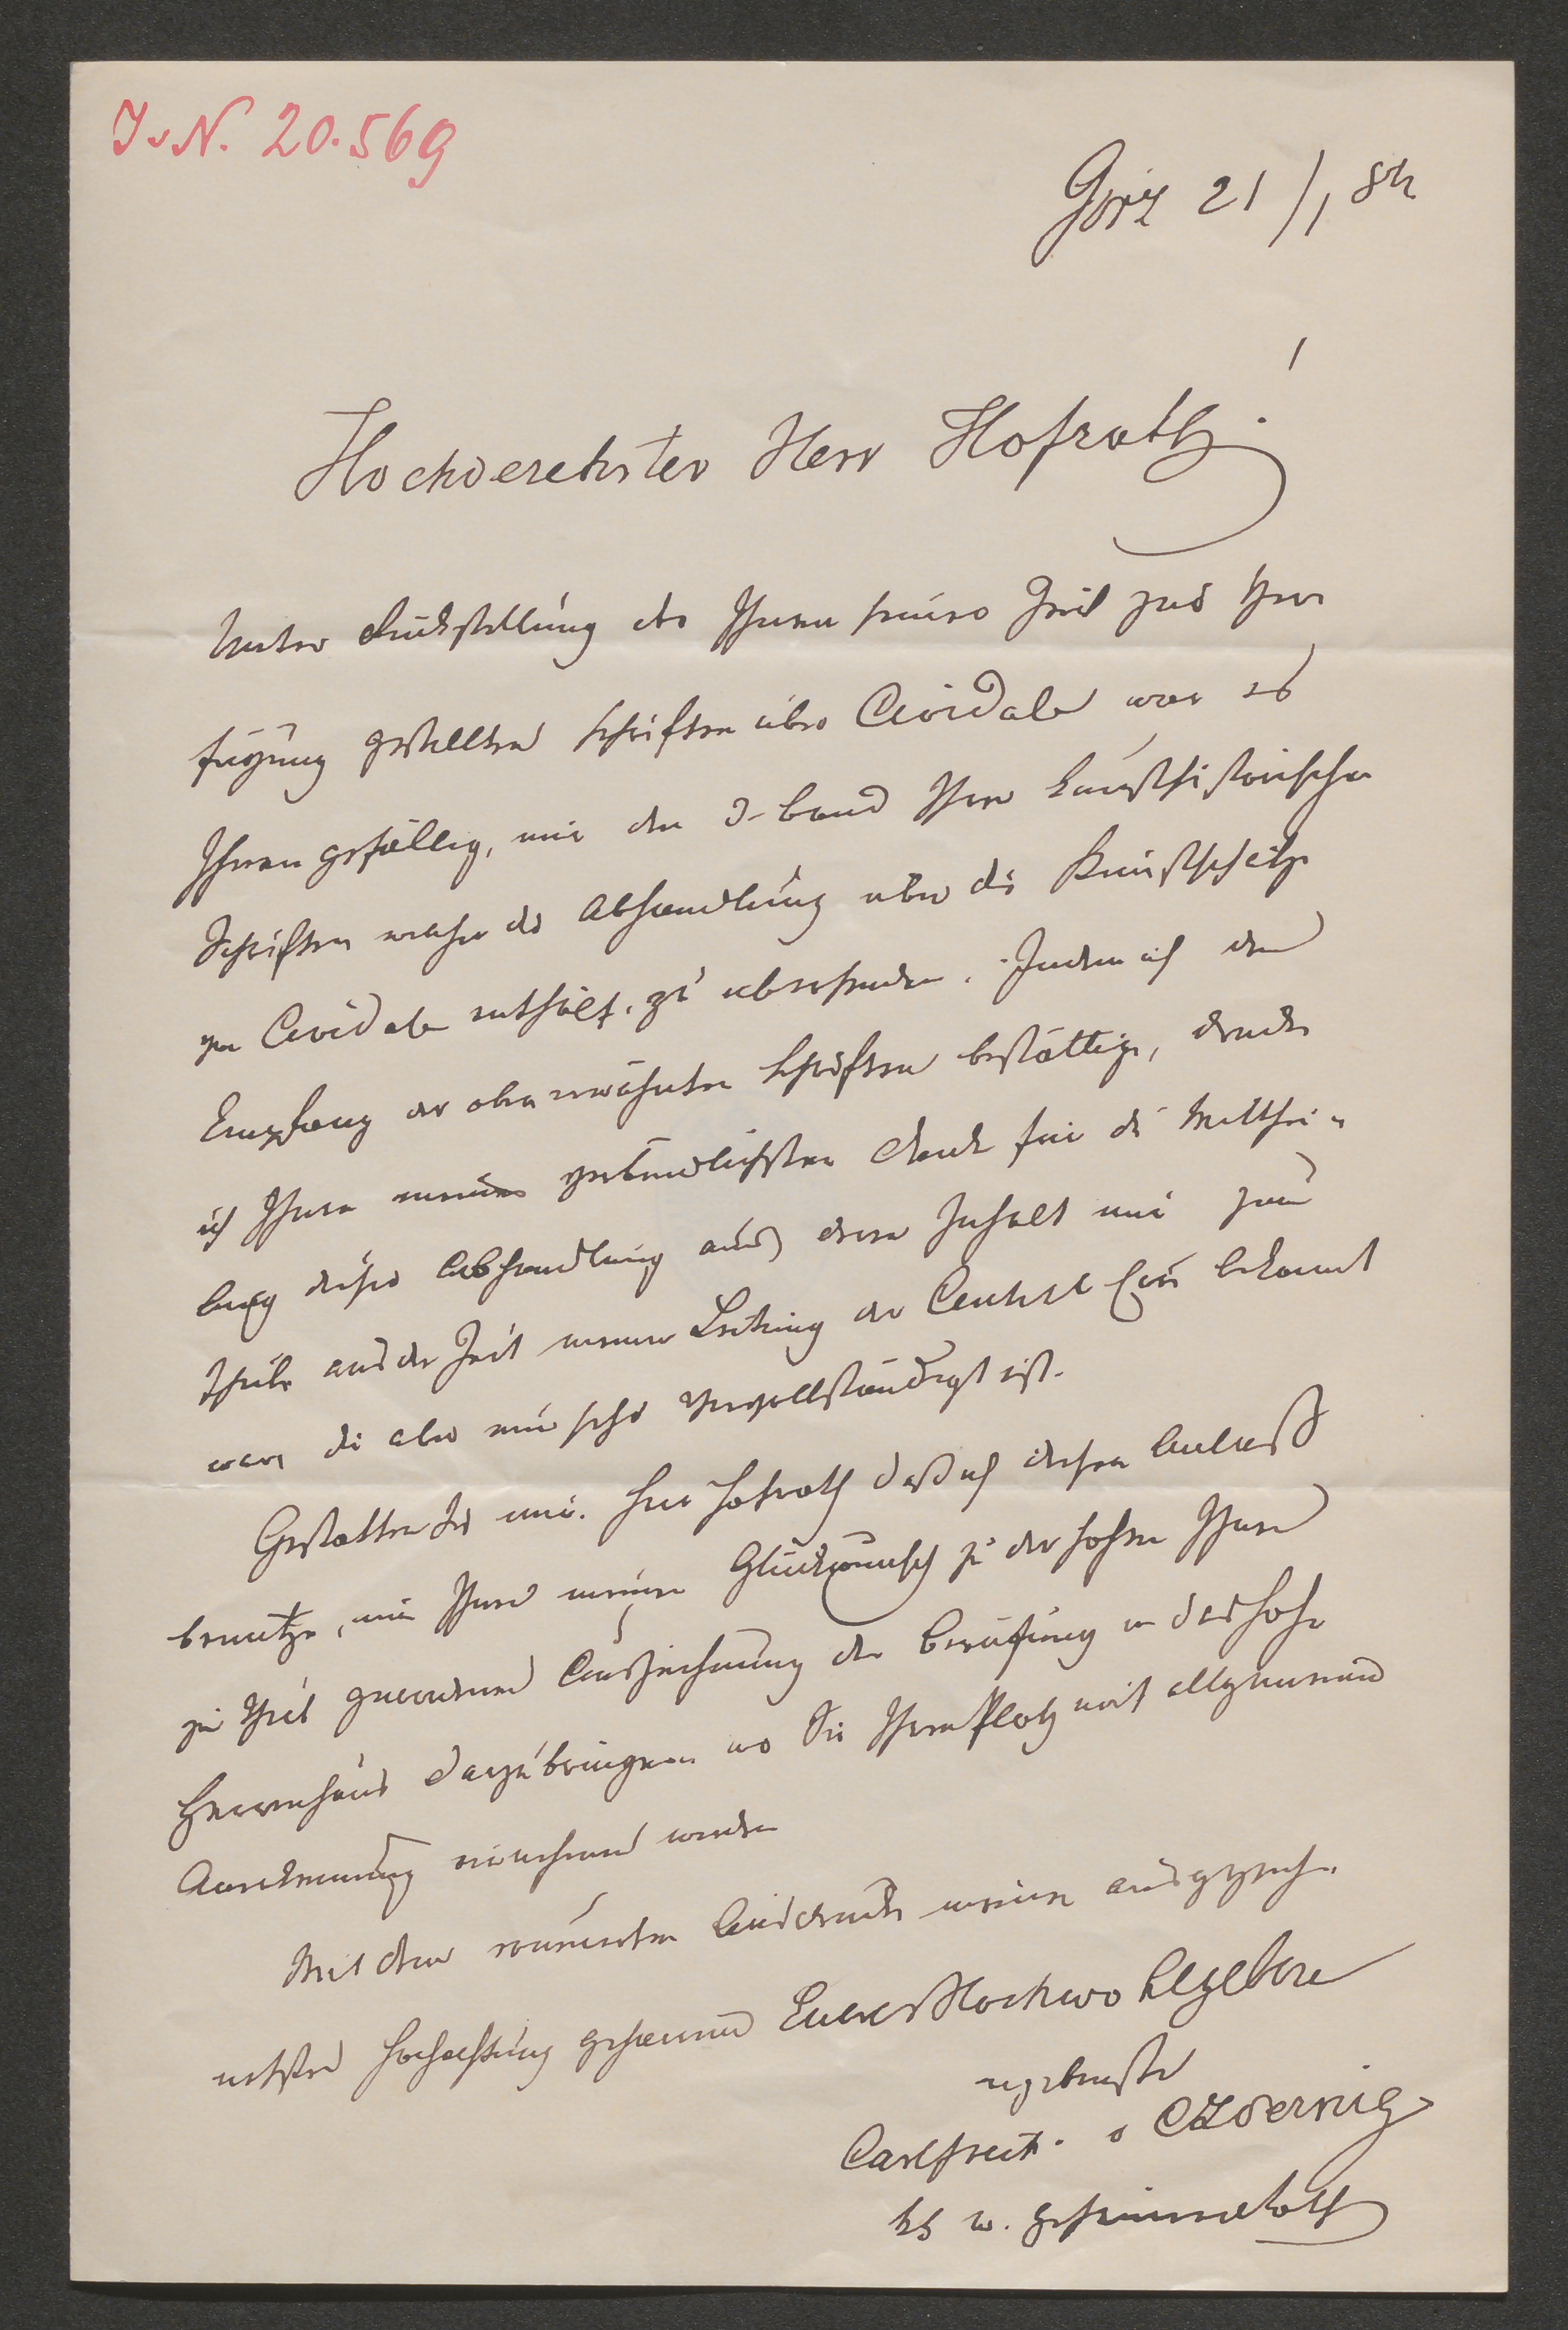 J. N. 20.569
Görz 21/1 84
Hochverehrter Herr Hofrath!
Unter Rückstellung der Ihnen seiner Zeit zur Ver
fügung gestellten Schriften über Cividale war es
Ihnen gefällig, mir den Band Ihrer kunsthistorischen
Schriften welcher die Abhandlung über die Kunstschätze
von Cividale enthält, zu übersenden. Indem ich den
Empfang der oben erwähnten Schriften bestättige, danke
ich Ihnen verbindlichsten Dank für die Mitthei-
lung dieser Abhandlung aus deren Inhalt mir zum
Theile aus der Zeit meiner Leitung der Central Com bekannt
war, die aber nun sehr vervollständigt ist.
Gestatten Sie mir. Herr Hofrath daß ich diesen Anlaß
benutze, um Ihnen meinen Glückwunsch zu der hohen Ihnen
zu Theil gewordenen Auszeichnung der Berufung in das hohe
Herrenhaus darzubringen wo Sie Ihren Platz mit allgemeiner
Anerkennung einnehmen werden
Mit dem erneuerten Ausdrucke meiner ausgezeich-
netsten Hochachtung geharrend Euer Hochwohlgeboren
ergebenster
Carl Freih. v Czoernig
kk w. Geheimrath